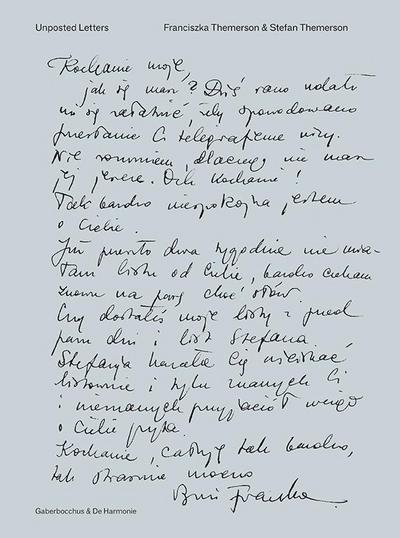 Unposted Letters
Franciszka Themerson & Stefan Themerson
Kochanie moje,
jak się masz? Dziś rano udało
mi się załatwić, żeby spowodowano
przesłanie Ci telegraficzne wizy.
Nie rozumiem, dlaczego nie masz
jej jeszcze. Och kochanie!
Tak bardzo niespokojna jestem
o Ciebie.
Już przeszło dwa tygodnie nie mia-
łam listu od Ciebie, bardzo czekam
znowu na parę choć słów.
Czy dostałeś moje listy z przed
paru dni i list Stefana.
Stefania kazała Cię uściskać
listownie i tylu znanych Ci
i nieznanych przyjaciół wciąż
o Ciebie pyta.
Kochanie, całuję tak bardzo,
tak strasznie mocno
Franka
Gaberbocchus & De Harmonie